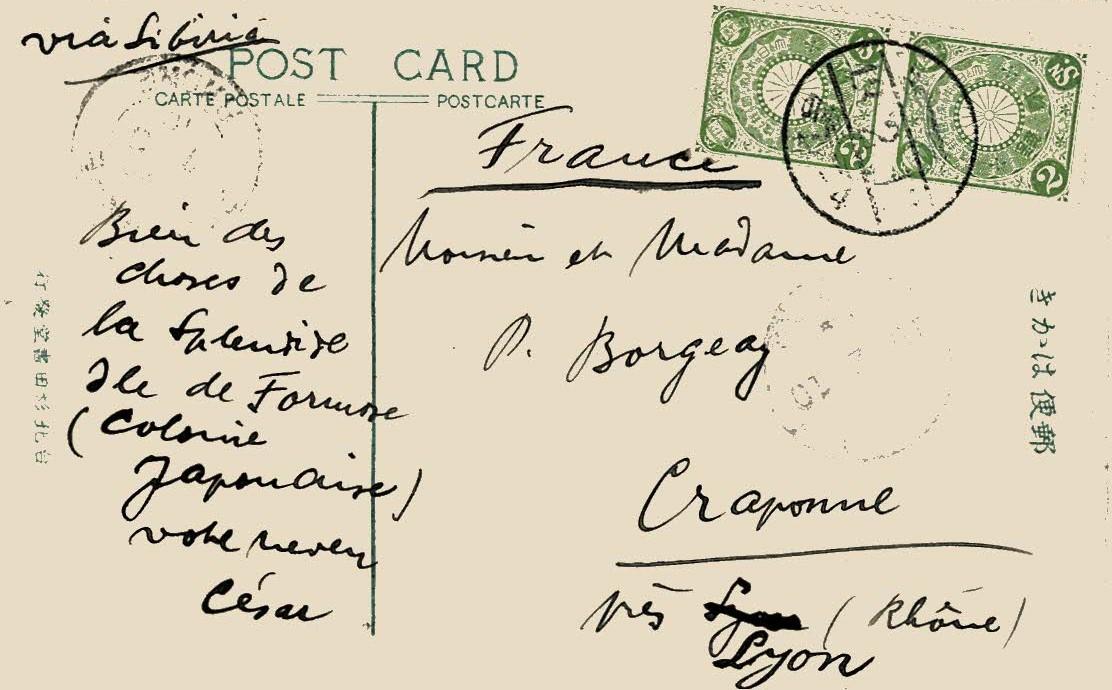 via Sibiria
POST CARD
CARTE POSTALE
POSTCARTE
France
Bien des
choses de
la Splendide
Ile de Formose
(Colonie
Japonaise)
votre neveu
César
Monsieur et Madame
P. Borgeay
Craponne
près
(Rhône)
Lyon
郵便はかき
2
2